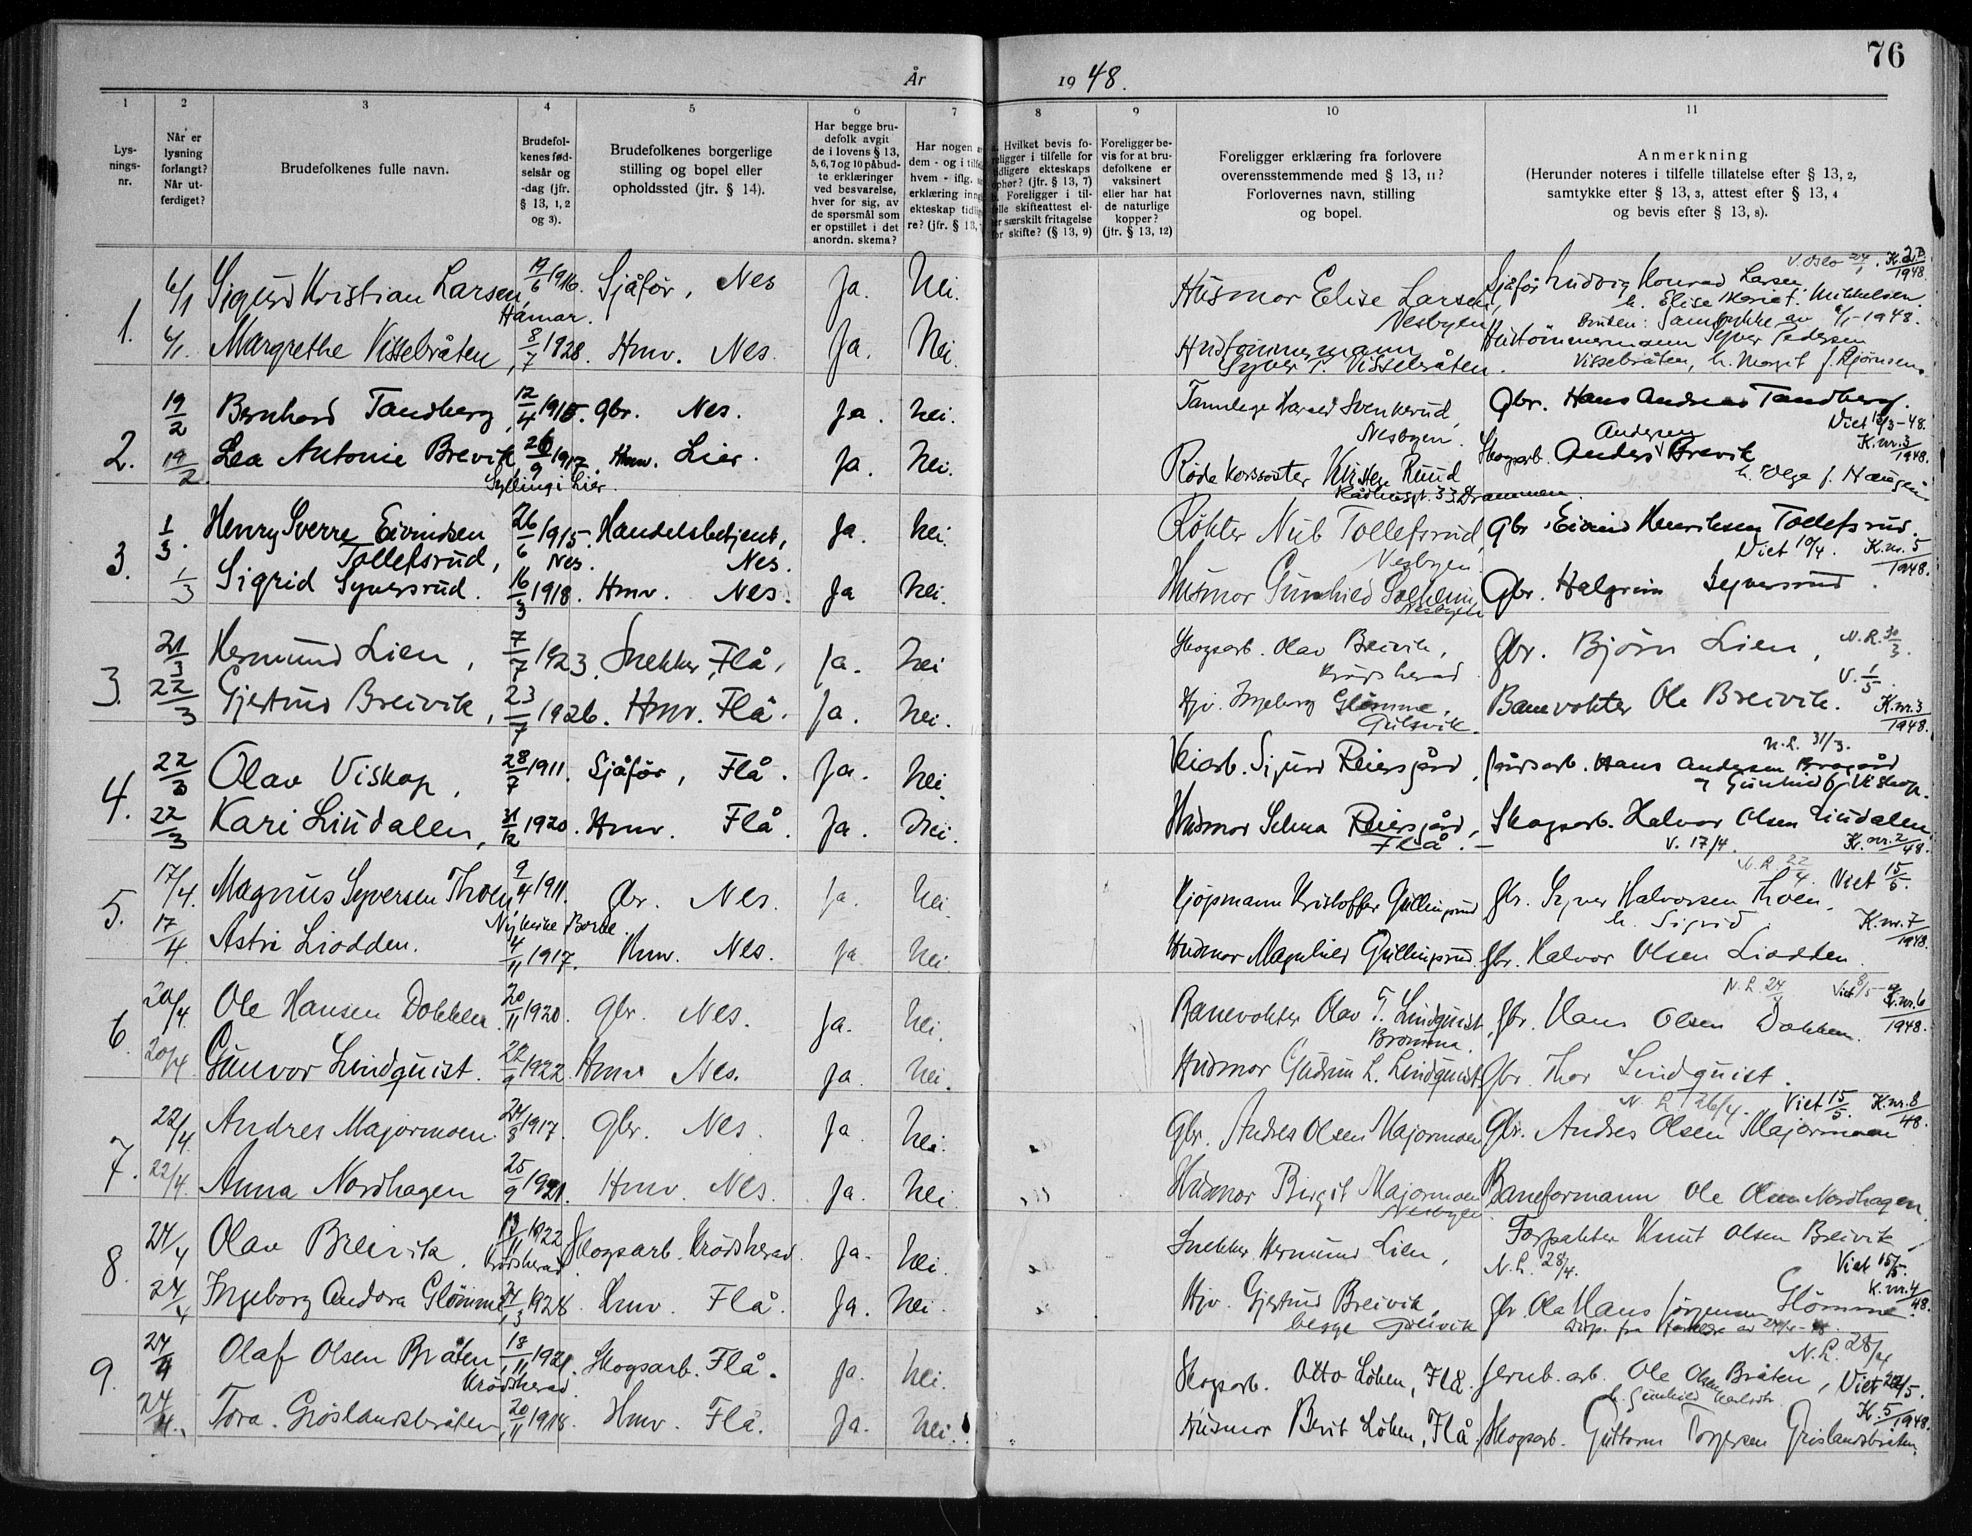 76
År 1948.
1 2 3 4 5 6 7 8 9 10 11
Lys-
nings-
nr.
Når er
lysning
forlangt?
Når ut-
ferdiget?
Brudefolkenes fulle navn.
Brudefol-
kenes fød-
selsår og
-dag (jfr.
§ 13, 1, 2
og 3).
Brudefolkenes borgerlige
stilling og bopel eller
opholdssted (jfr. § 14).
Har begge bru-
defolk avgit
de i lovens § 13,
5, 6, 7 og 10 påbud-
te erklæringer
ved besvarelse,
hver for sig, av
de spørsmål som
er opstillet i det
anordn. skema?
Har nogen
dem - og i
hvem - iflg.
erklæring
ekteskap
re? (jfr. § 13,
Hvilket bevis fo-
religger i tilfelle for
tidligere ekteskaps
ophør? (jfr. § 13, 7)
Foreligger i til-
felle skifteattest el-
er særskilt fritagelse
for skifte? (§ 13, 9)
Foreligger be-
vis for at bru-
defolkene er
vaksinert
eller har hat
de naturlige
kopper?
(jfr. § 13, 12)
Foreligger erklæring fra forlovere
overensstemmende med § 13, 11?
Forlovernes navn, stilling
og bopel.
Anmerkning
(Herunder noteres i tilfelle tillatelse efter § 13, 2,
samtykke efter § 13, 3, attest efter § 13, 4
og bevis efter § 13, 8).
1. 6/1 Sigurd Kristian Larsen, 19/6 1916. Sjåfør, Nes Ja. Nei. Husmor Elise Larsen, Sjåfør Ludvig Konrad Larsen V. Oslo 24/1. K. 2B/1948.
Hamar. Nesbyen h. Elise Mariet. Mikkelsen
Bruden: Samtykke av 6/1-1948.
6/1 Margrethe Visselbråten, 8/7 1928. Hmv. Nes. Ja. Nei. Hustømmermann Hustømmermann Syver Pedersen
Syver P. Visselbråten. Visselbråten, h. Margit f. Bjørnsen.
2. 19/2 Bernhard Tandberg, 12/4 1915. gbr. Nes. Ja. nei. Tannlege Harald Svenkerud, Gbr. Hans Andreas Tandberg.
Nesbyen. Viet 13/3-48.
19/2 Lea Antonie Brevik 26/9 1917. Hmv. Lier. Ja. Nei. Skogsarb. Anders Andersen Brevik K.nr. 3/1948.
Sylling i Lier. Røde Korssøster Kirsten Ruud h. Olga f. Haugen
Rådhusgt. 33 Drammen.
3. 1/3. Henry Sverre Eivindsen 26/6 1915. Handelsbetjent, Ja. Nei. Røkter Nub Tollefsrud, Gbr. Eivind Henriksen Tollefsrud.
Tollefsrud, Nes. Nes. Nesbyen. Viet 10/4. K.nr. 5/1948.
1/3 Sigrid Syversrud. 16/3 1918. Hmv. Nes. Ja Nei. Husmor Gunhild Solheim Gbr. Halgrim Syversrud.
Nesbyen
3. 21/3 Hermund Lien, 7/7 1923. Snekker, Flå, Ja. Nei Skogsarb. Olav Breivik, gbr. Bjørn Lien, N.L. 30/3.
Krødsherad V. 1/5.
22/3 Gjertrud Breivik, 23/7 1926. Hmv. Flå. Ja. Nei. Hjv. Ingeborg Glømme, Banevokter Ole Breivik. K.nr. 3/1948.
Gulsvik.
4. 22/3 Olav Viskop, 28/7 1911. Sjåfør, Flå. Ja. Nei. Veiarb. Sigurd Reiersgård, Hans Andersen N.L. 31/3.
22/3 Kari Lindalen, 31/12 1920. Hmv. Flå. Ja. Nei. Husmor Selma Reiersgård, Skogsarb. Halvor Olsen Lindalen.
Flå. V. 17/4. K.nr. 2/48.
5. 17/4. Magnus Syversen Thoen 9/4 1911. Gbr. Nes. Ja. Nei. Kjøpmann Kristoffer Gullingsrud gbr. Syver Halvorsen Thoen. N.L. 22/4 Viet 15/5.
Nykirke Borre. h. Sigrid K.nr. 7/1948.
17/4. Astri Liodden. 4/11 1917. Hmv. Nes. Ja. Nei Husmor Magnhild Gullingsrud. gbr. Halvor Olsen Liodden.
6. 20/4. Ole Hansen Dokken. 20/11 1920. Gbr. Nes. Ja. Nei. Banevokter Olav T. Lindquist gbr. Hans Olsen Dokken. N.L. 24/4 Viet 8/5 K.nr. 6/1948.
Bromma.
20/4 Gunvor Lindquist. 22/9 1922. Hmv Nes. Ja. Nei. Husmor Gudrun L. Lindquist Gbr. Thor Lindquist.
7. 22/4. Andres Majormoen. 24/8 1917. Gbr. Nes. Ja. Nei. Gbr. Andres Olsen Majormoen Gbr. Andres Olsen Majormoen N.L. 26/4. Viet 15/5. K.nr. 8/48.
22/4. Anna Nordhagen 25/9 1921. Hmv. Nes. Ja. Nei Husmor Birgit Majormoen Baneformann Ole Olsen Nordhagen.
Nesbyen
8. 24/4 Olav Breivik, 13/11 1922. Skogsarb. Krødsherad. Ja. Nei. Snekker Hermund Lien, Forpakter Knut Olsen Breivik
Krødsherad N.L. 28/4. Viet 15/5.
24/4 Ingeborg Andora Glømme, 24/3 1928. Hmv. Flå. Ja. Nei. Hjv. Gjertrud Breivik, gbr. Ole Hans Jørgensen Glømme. K.nr. 4/48.
begge Gulsvik
9. 24/4 Olaf Olsen Bråten, 18/11 1921. Skogsarb. Flå. Ja. Nei. Skogsarb. Otto Løken, Flå. Jernb.arb. Ole Olsen Bråten, N.L. 28/4 Viet 22/5.
Krødsherad. h. Gunhild
24/4. Tora Grøslandsbråten, 20/11 1918. Hmv. Flå. Ja. Nei. Husmor Berit Løken, Flå. Skogsarb. Guttorm Torgersen Grøslandsbråten. K. 5/1948.